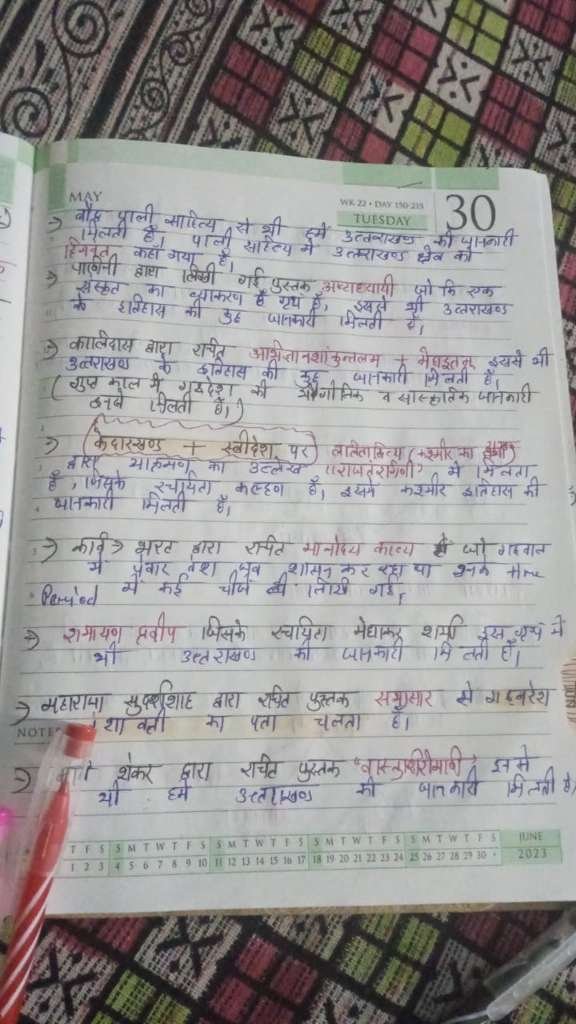 MAY
WK 22 • DAY 150-215
TUESDAY
30
→ बौद्ध पाली साहित्य से भी हमे उत्तराखण्ड की जानकारी
मिलती है। पाली साहित्य में उत्तराखण्ड क्षेत्र को
हिमवंत कहा गया है।
→ पाणिनी द्वारा लिखी गई पुस्तक अष्टाध्यायी जो कि एक
संस्कृत का व्याकरण है ग्रंथ है, इससे भी उत्तराखण्ड
के इतिहास की कुछ जानकारी मिलती है।
→ कालिदास द्वारा रचित अभिज्ञानशांकुन्तलम + मेघदूतम् इससे भी
उत्तराखण्ड के इतिहास की कुछ जानकारी मिलती है।
(गुप्त काल में गढ़देश की भौगोलिक व सांस्कृतिक जानकारी
इनसे मिलती है।)
→ (केदारखण्ड + स्त्रीदेश पर) ललितादित्य (कश्मीर का राजा)
द्वारा आक्रमण का उल्लेख "राजतरंगिणी" में मिलता
है, जिसके रचयिता कल्हण हैं, इसमें कश्मीर इतिहास की
जानकारी मिलती है।
→ कवि → भरत द्वारा रचित मानोदय काव्य जो गढ़वाल
में पंवार वंश जब शासन कर रहा था उनके time
Period में कई चीजें थी लिखी गई,
→ रामायण प्रदीप जिसके रचयिता मेधाकर शर्मा इस ग्रंथ में
भी उत्तराखण्ड की जानकारी मिलती है।
→ महाराजा सुदर्शशाह द्वारा रचित पुस्तक सभासार से गढ़नरेश
NOTE शावली का पता चलता है।
→ शंकर द्वारा रचित पुस्तक "वास्तुशिरोमणि" इनमे
भी हमे उत्तराखण्ड की जानकारी मिलती है,
T F S S M T W T F S S M T W T F S S M T W T F S S M T W T F S JUNE
1 2 3 4 5 6 7 8 9 10 11 12 13 14 15 16 17 18 19 20 21 22 23 24 25 26 27 28 29 30 • 2023